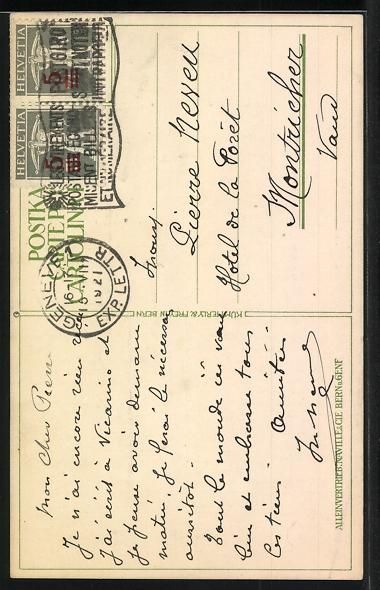 HELVETIA
5
HELVETIA
5
POSTKARTE
CARTOLINA POSTALE
GENEVE 1
EXP. LETTR.
Pierre Neveu
Hotel de la Forêt
Montricher
Vaud
KÜMMERLY & FREY BERN
mon cher Pierre
Je n'ai encore rien
J'ai écrit à
Je pense avoir demain
matin. Je ferai le nécessaire
aussitôt.
Tout le monde ici va
bien et embrasse tous
les tiens. Amitiés
ALLEINVERTRIEB: NAVILLE & CIE BERN & GENF